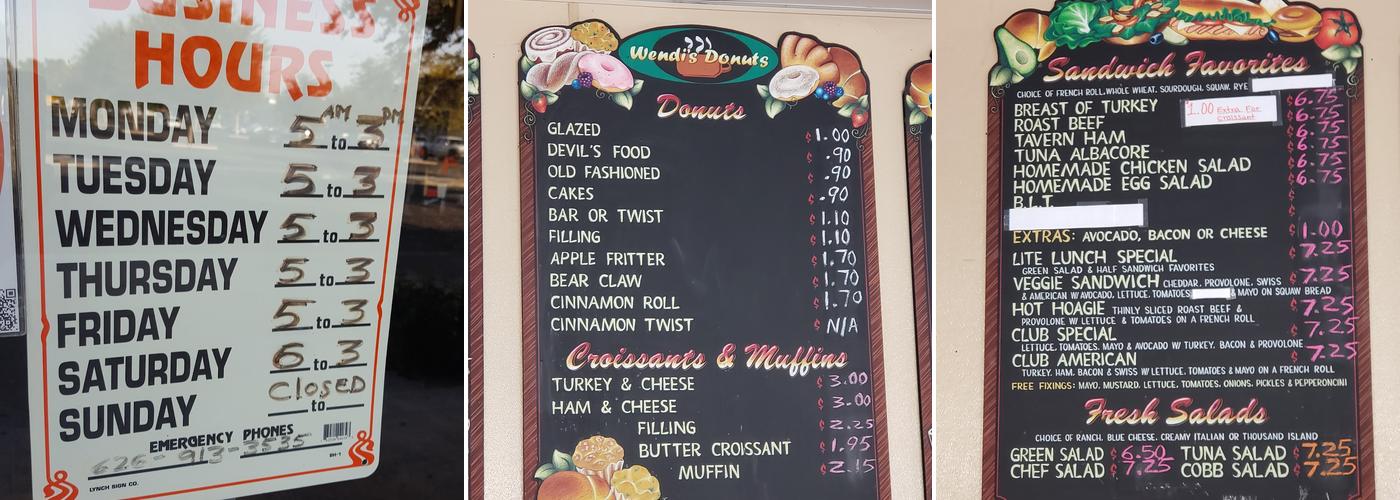 BUSINESS
HOURS
MONDAY 5 AM to 3 PM
TUESDAY 5 to 3
WEDNESDAY 5 to 3
THURSDAY 5 to 3
FRIDAY 5 to 3
SATURDAY 6 to 3
SUNDAY CLOSED to
EMERGENCY PHONES
626-913-3535
LYNCH SIGN CO.
BH-1
Wendi's Donuts
Donuts
GLAZED $ 1.00
DEVIL'S FOOD $ .90
OLD FASHIONED $ .90
CAKES $ .90
BAR OR TWIST $ 1.10
FILLING $ 1.10
APPLE FRITTER $ 1.70
BEAR CLAW $ 1.70
CINNAMON ROLL $ 1.70
CINNAMON TWIST $ N/A
Croissants & Muffins
TURKEY & CHEESE $ 3.00
HAM & CHEESE $ 3.00
FILLING $ 2.25
BUTTER CROISSANT $ 1.95
MUFFIN $ 2.15
Sandwich Favorites
CHOICE OF FRENCH ROLL, WHOLE WHEAT, SOURDOUGH, SQUAW, RYE
BREAST OF TURKEY $ 6.75
$1.00 Extra For
croissant
ROAST BEEF $ 6.75
TAVERN HAM $ 6.75
TUNA ALBACORE $ 6.75
HOMEMADE CHICKEN SALAD $ 6.75
HOMEMADE EGG SALAD $ 6.75
B.L.T.
EXTRAS: AVOCADO, BACON OR CHEESE $ 1.00
LITE LUNCH SPECIAL $ 7.25
GREEN SALAD & HALF SANDWICH FAVORITES
VEGGIE SANDWICH CHEDDAR, PROVOLONE, SWISS $ 7.25
& AMERICAN W/ AVOCADO, LETTUCE, TOMATOES & MAYO ON SQUAW BREAD
HOT HOAGIE THINLY SLICED ROAST BEEF & $ 7.25
PROVOLONE W/ LETTUCE & TOMATOES ON A FRENCH ROLL
CLUB SPECIAL $ 7.25
LETTUCE, TOMATOES, MAYO & AVOCADO W/ TURKEY, BACON & PROVOLONE
CLUB AMERICAN $ 7.25
TURKEY, HAM, BACON & SWISS W/ LETTUCE, TOMATOES & MAYO ON A FRENCH ROLL
FREE FIXINGS: MAYO, MUSTARD, LETTUCE, TOMATOES, ONIONS, PICKLES & PEPPERONCINI
Fresh Salads
CHOICE OF RANCH, BLUE CHEESE, CREAMY ITALIAN OR THOUSAND ISLAND
GREEN SALAD $ 6.50 TUNA SALAD $ 7.25
CHEF SALAD $ 7.25 COBB SALAD $ 7.25